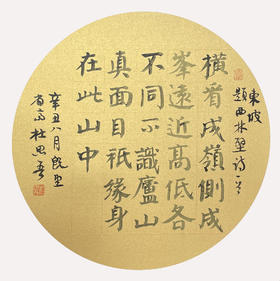 東坡
題西林壁诗一首
橫看成嶺側成
峯遠近高低各
不同不識廬山
真面目祇緣身
在此山中
辛丑八月既望
杜思